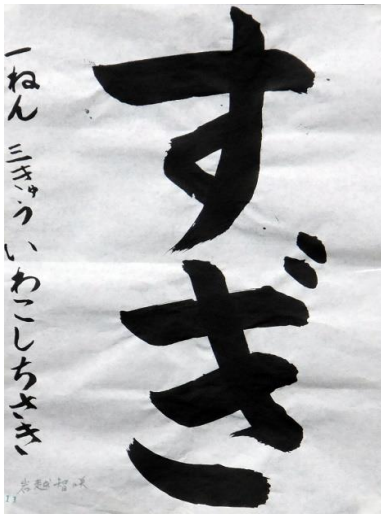 すぎ
一ねん 三きゅう いわこしちさき
岩越智咲